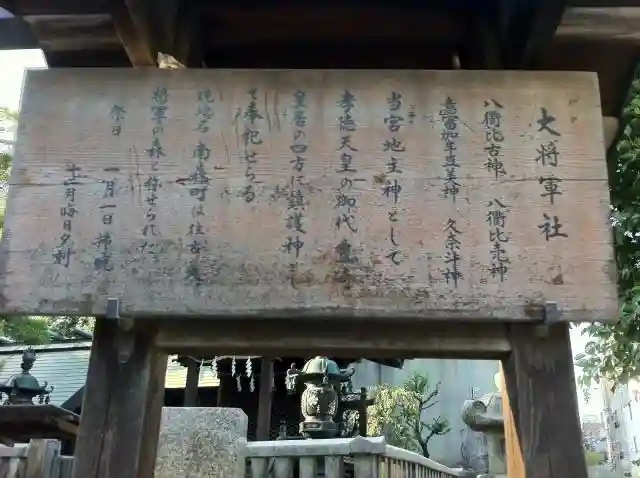 大将軍社
八衢比古神　八衢比売神
久奈斗神
当宮地主神として
孝徳天皇の御代
皇居の四方に鎮護神として
て奉祀せらる
現地名南森町は往古
将軍の森と称せられた
祭日　一月一日
十二月晦日夕刻